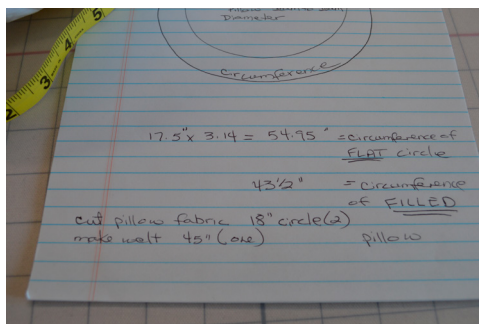 5
4
3
Diameter
circumference
17.5" x 3.14 = 54.95" = circumference of
FLAT circle
43 1/2" = circumference
of FILLED
cut pillow fabric 18" circle (2)
make welt 45" (one) pillow